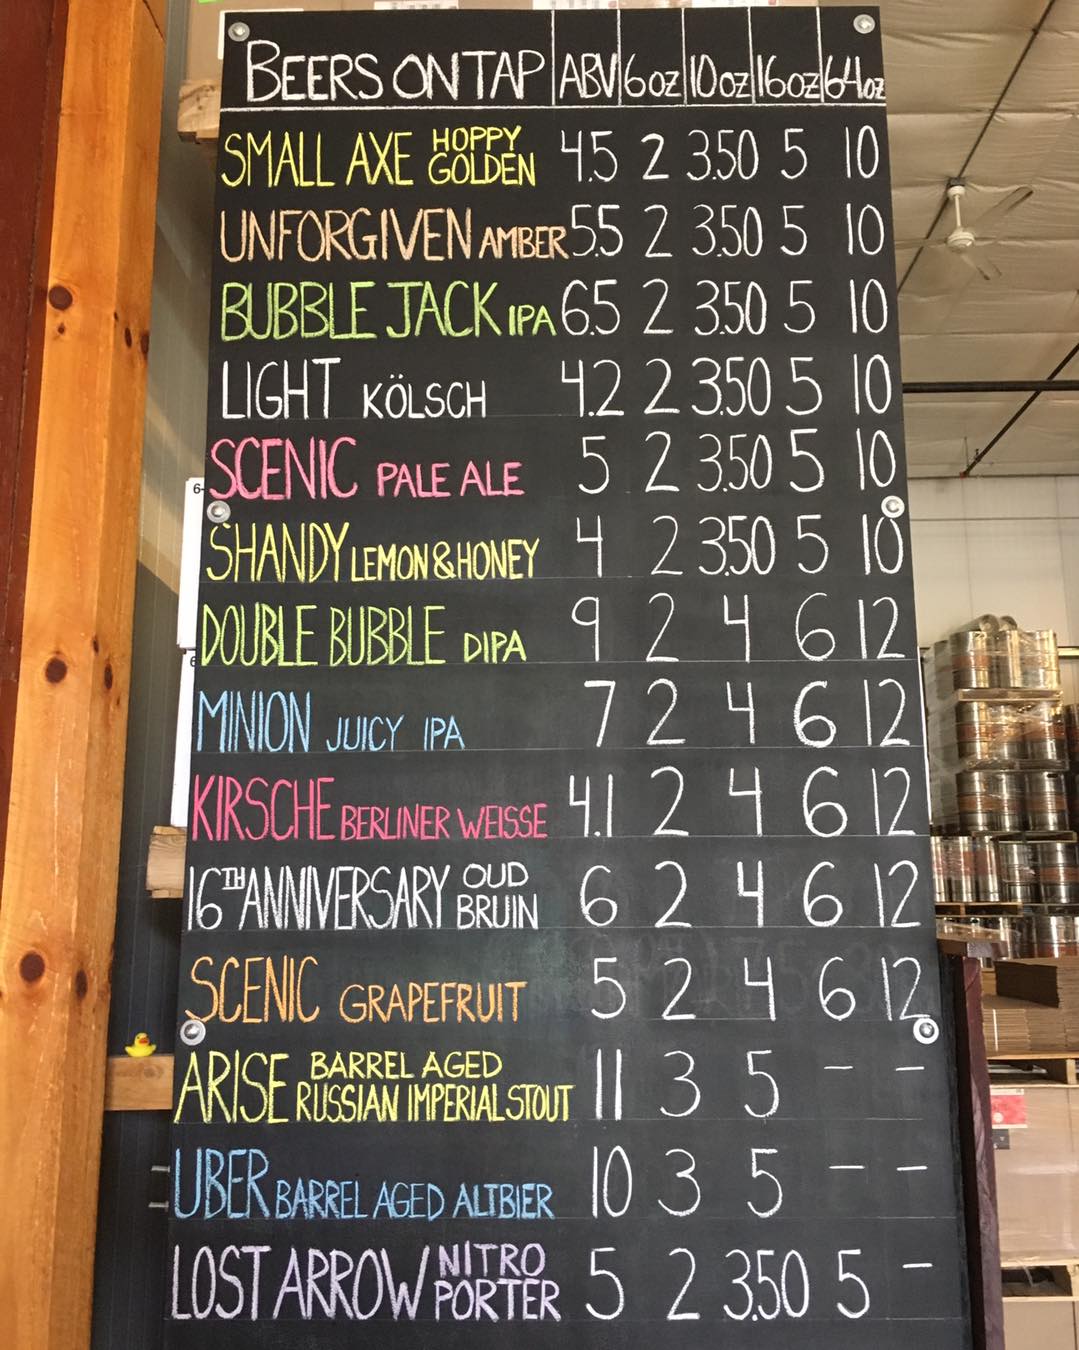 BEERS ON TAP ABV 6oz 10oz 16oz 64oz
SMALL AXE HOPPY GOLDEN 4.5 2 3.50 5 10
UNFORGIVEN AMBER 5.5 2 3.50 5 10
BUBBLE JACK IPA 6.5 2 3.50 5 10
LIGHT KÖLSCH 4.2 2 3.50 5 10
SCENIC PALE ALE 5 2 3.50 5 10
SHANDY LEMON & HONEY 4 2 3.50 5 10
DOUBLE BUBBLE DIPA 9 2 4 6 12
MINION JUICY IPA 7 2 4 6 12
KIRSCHE BERLINER WEISSE 4.1 2 4 6 12
16TH ANNIVERSARY OUD BRUIN 6 2 4 6 12
SCENIC GRAPEFRUIT 5 2 4 6 12
ARISE BARREL AGED RUSSIAN IMPERIAL STOUT 11 3 5 – –
UBER BARREL AGED ALTBIER 10 3 5 – –
LOST ARROW NITRO PORTER 5 2 3.50 5 –